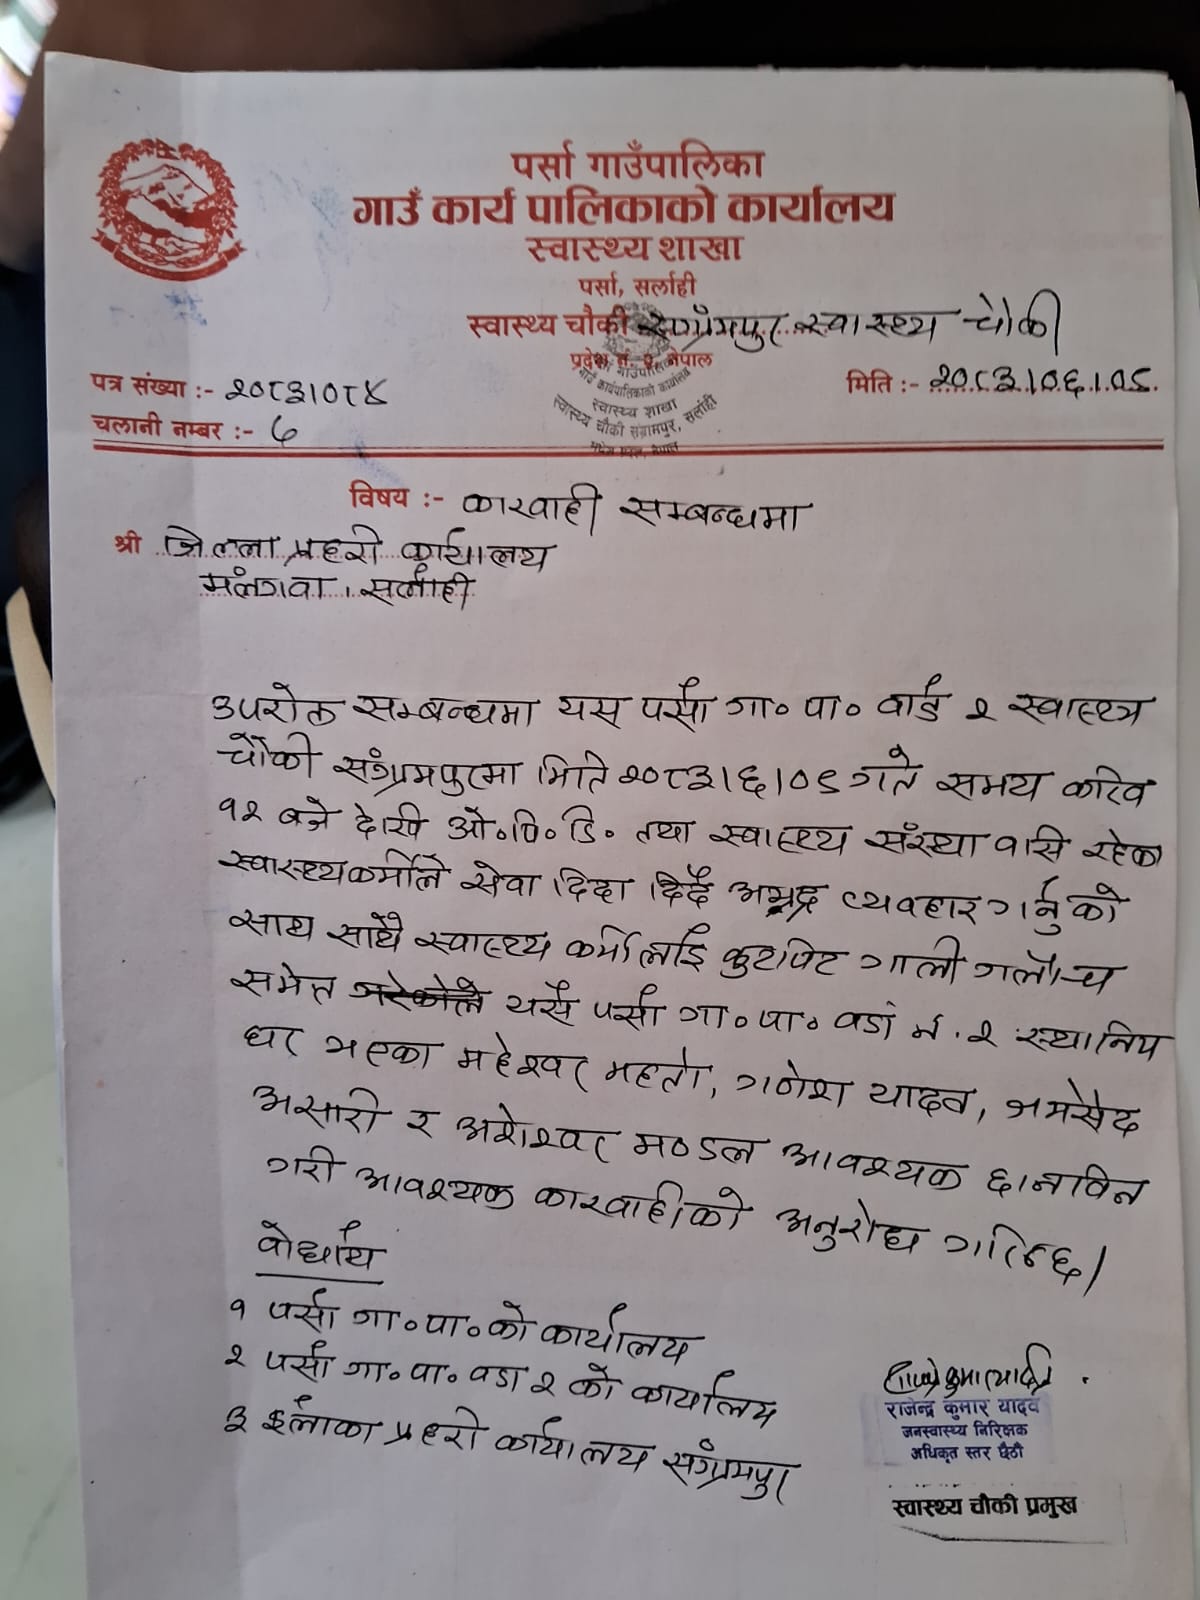 पर्सा गाउँपालिका
गाउँ कार्य पालिकाको कार्यालय
स्वास्थ्य शाखा
पर्सा, सर्लाही
स्वास्थ्य चौकी संग्रामपुर स्वास्थ्य चौकी
प्रदेश नं. २, नेपाल
पत्र संख्या :- २०८३।०८४
मिति :- २०८३।०६।०८
चलानी नम्बर :- ७
गाउँपालिका
गाउँ कार्यपालिकाको कार्यालय
स्वास्थ्य शाखा
स्वास्थ्य चौकी संग्रामपुर, सर्लाही
मधेश प्रदेश, नेपाल
विषय :- कारवाही सम्बन्धमा
श्री जिल्ला प्रहरी कार्यालय
मलंगवा, सर्लाही
उपरोक्त सम्बन्धमा यस पर्सा गा॰ पा॰ वार्ड २ स्वास्थ्य
चौकी संग्रामपुरमा मिति २०८३।६।०८ गते समय करिव
१२ बजे देखि ओ॰पि॰डि॰ तथा स्वास्थ्य संस्था रहेका
स्वास्थ्यकर्मीले सेवा दिदा दिदै अभद्र व्यवहार गर्नुको
साथ साथै स्वास्थ्य कर्मीलाई कुटपिट गाली गलौच
समेत यसै पर्सा गा॰पा॰ वडा नं. २ स्थानिय
घर भएका महेश्वर महतो, गणेश यादव,
असारी र मण्डल आवश्यक छानविन
गरी आवश्यक कारवाहीको अनुरोध गरिन्छ।
वोर्धाथ
१ पर्सा गा॰पा॰को कार्यालय
२ पर्सा गा॰पा॰ वडा २ को कार्यालय
३ ईलाका प्रहरी कार्यालय संग्रामपुर
राजेन्द्र कुमार यादव
जनस्वास्थ्य निरिक्षक
अधिकृत स्तर छैठौ
स्वास्थ्य चौकी प्रमुख